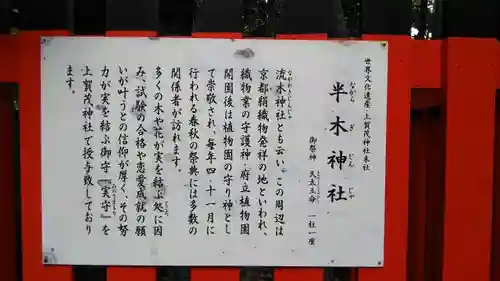 世界文化遺産・上賀茂神社末社
半木神社
なからぎじんじゃ
御祭神 天太玉命 一社一座
流木神社とも云い、この周辺は
ながれぎじんじゃ
京都絹織物発祥の地といわれ、
織物業の守護神・府立植物園
開園後は植物園の守り神とし
て崇敬され、毎年四・十一月に
行われる春秋の祭典には多数の
関係者が訪れます。
多くの木や花が実を結ぶ処に因
み、試験の合格や恋愛成就の願
いが叶うとの信仰が厚く、その努
力が実を結ぶ御守『実守』を
上賀茂神社で授与致しており
ます。